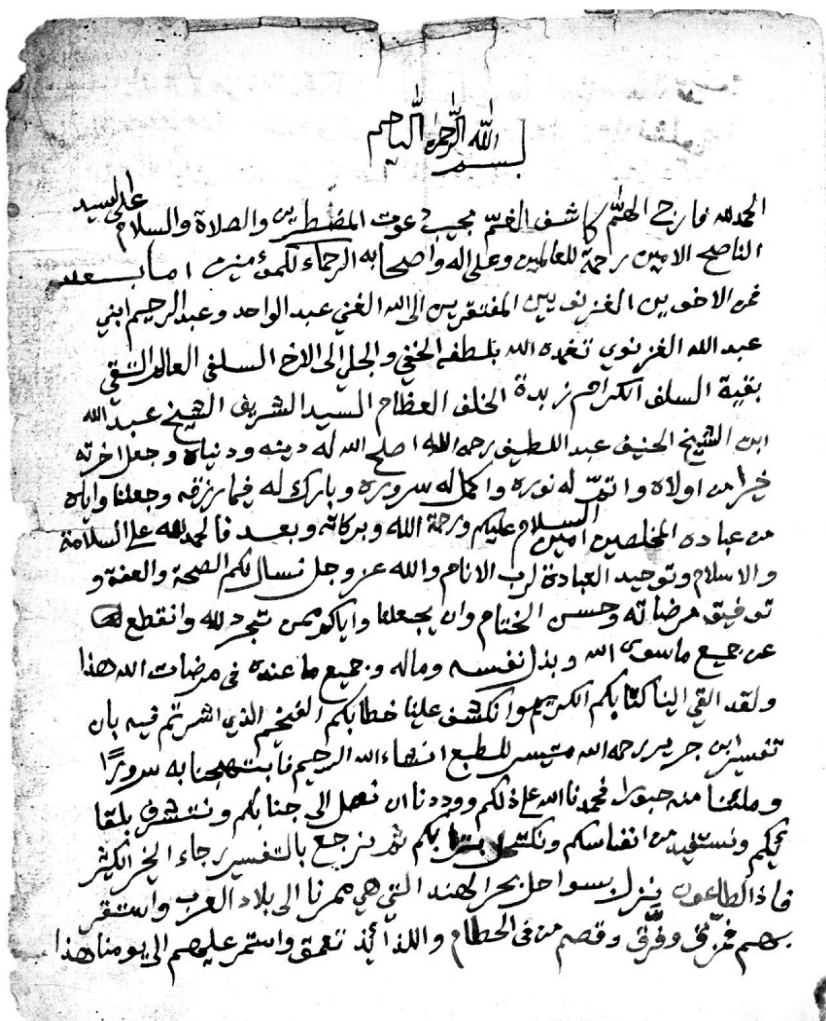 بسم الله الرحمن الرحيم
الحمد لله فارج الهمّ كاشف الغمّ مجيب دعوت المضطرين والصلاة والسلام على السيد
الناصح الامين رحمة للعالمين وعلى اله واصحابه الرحماء للمؤمنين اما بعد
فمن الاخوين الغزنويين المفتقرين الى الله الغني عبد الواحد وعبد الرحيم ابني
عبد الله الغزنوي تغمده الله بلطفه الخفي والجلي الى الاخ السلفي العالم التقي
بقية السلف الكرام زبدة الخلف العظام السيد الشريف الشيخ عبد الله
ابن الشيخ الحنيف عبد اللطيف رحمه الله اصلح الله له دينه ودنياه وجعل اخرته
خيرا من اولاه واتمّ له نوره واكمل له سروره وبارك له فيما رزقه وجعلنا واياه
من عباده المخلصين امين السلام عليكم ورحمة الله وبركاته وبعد فالحمد لله على السلامة
والاسلام وتوحيد العبادة لرب الانام والله عز وجل نسال لكم الصحة والعفة و
توفيق مرضاته وحسن الختام وان يجعلنا واياكم ممن تجرد لله وانقطع لله
عن جميع ما سوى الله وبذل نفسه وماله وجميع ما عنده في مرضات الله هذا
ولقد القي الينا كتابكم الكريم وانكشف علينا خطابكم الفخيم الذي اشرتم فيه بان
تفسير ابن جرير رحمه الله متيسر للطبع انشاء الله الرحيم فابتهجنا به سرورًا
وملئنا منه حبورا فحمدنا الله على ذلكم ووددنا ان نصل الى جنابكم ونتشرف بلقا
محيكم ونستفيد من انفاسكم ونكتحل بترابكم ثم نرجع بالتفسير رجاء الخير الكثير
فاذ الطاعون نزل بسواحل بحر الهند التي هي ممرنا الى بلاد العرب واستقر
بهم فمزّق وفرّق وقصم من في الحطام واللذائذ تعمق واستمر عليهم الى يومنا هذا